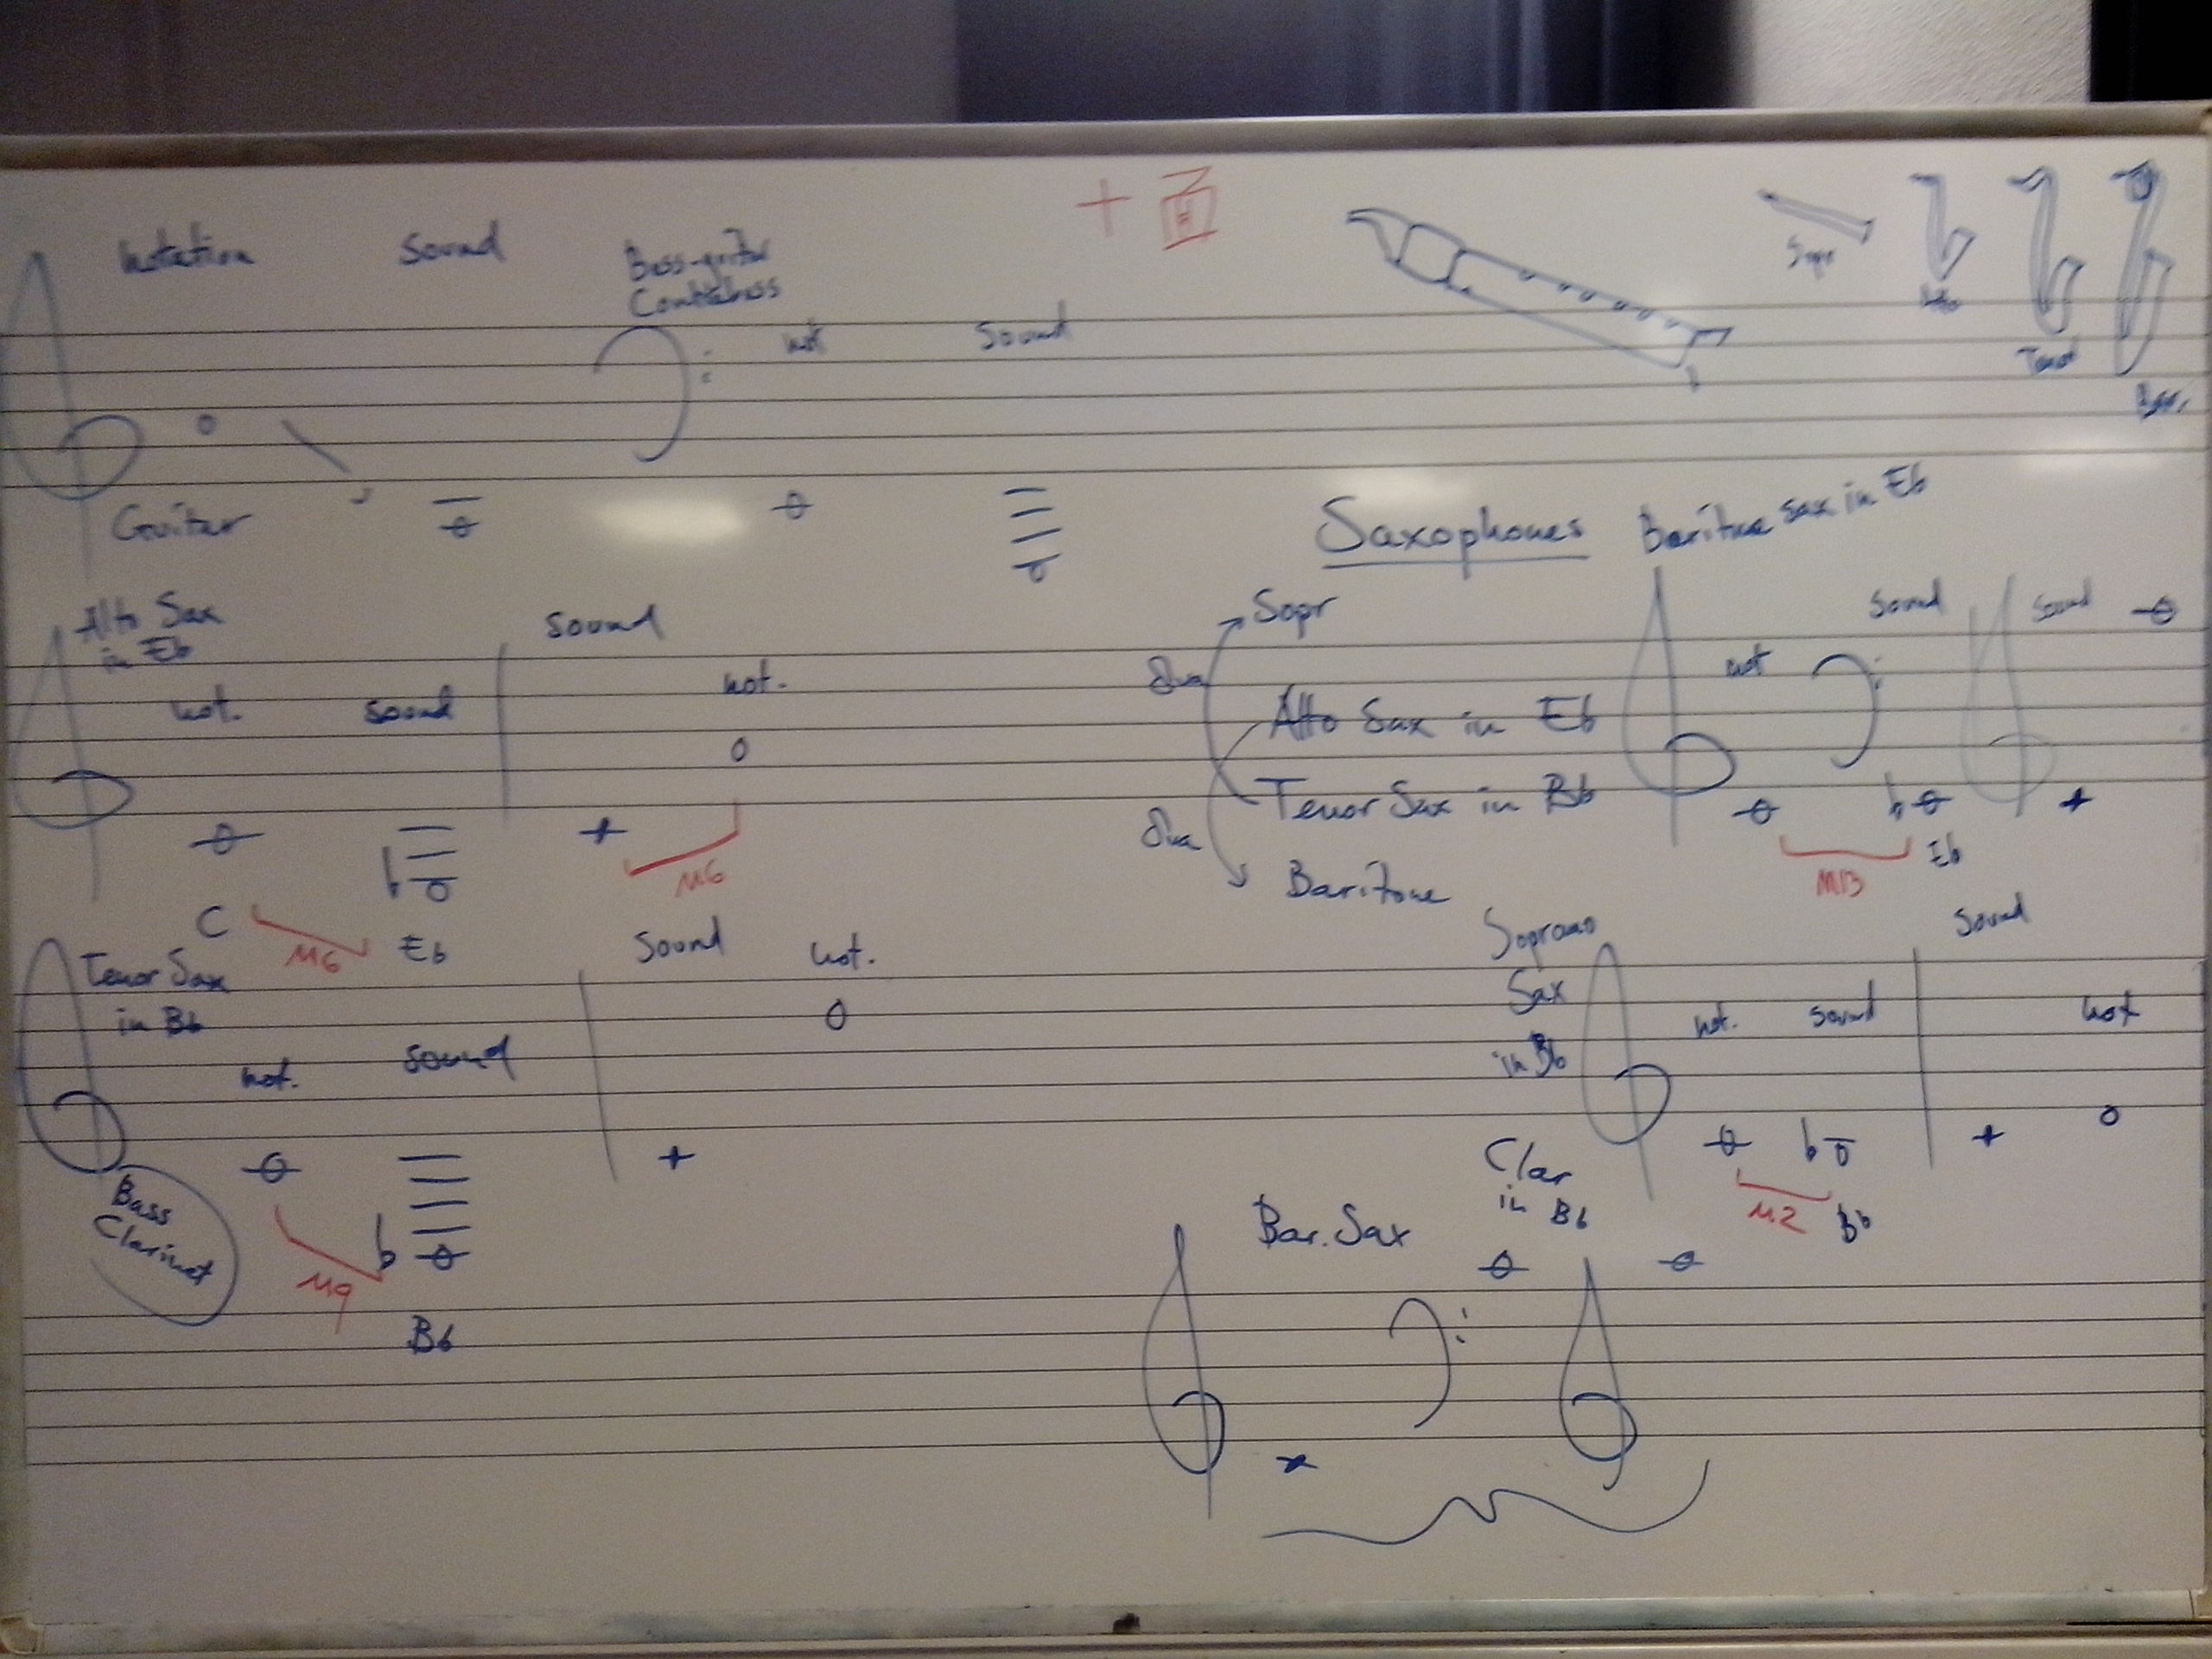 Notation
Sound
Bass-guitar
Contrabass
not
Sound
Guitar
Sopr
Alto
Tenor
Bar.
Saxophones
Baritone sax in Eb
Alto Sax
in Eb
not.
sound
sound
not.
C
M6
Eb
M6
Sopr
8va
Alto Sax in Eb
Tenor Sax in Bb
8va
Baritone
not
Sound
Sound
M13
Eb
Tenor Sax
in Bb
not.
sound
Sound
not.
Bass
Clarinet
M9
Bb
Soprano
Sax
in Bb
not.
sound
Sound
not
Clar
in Bb
M2
Bb
Bar. Sax